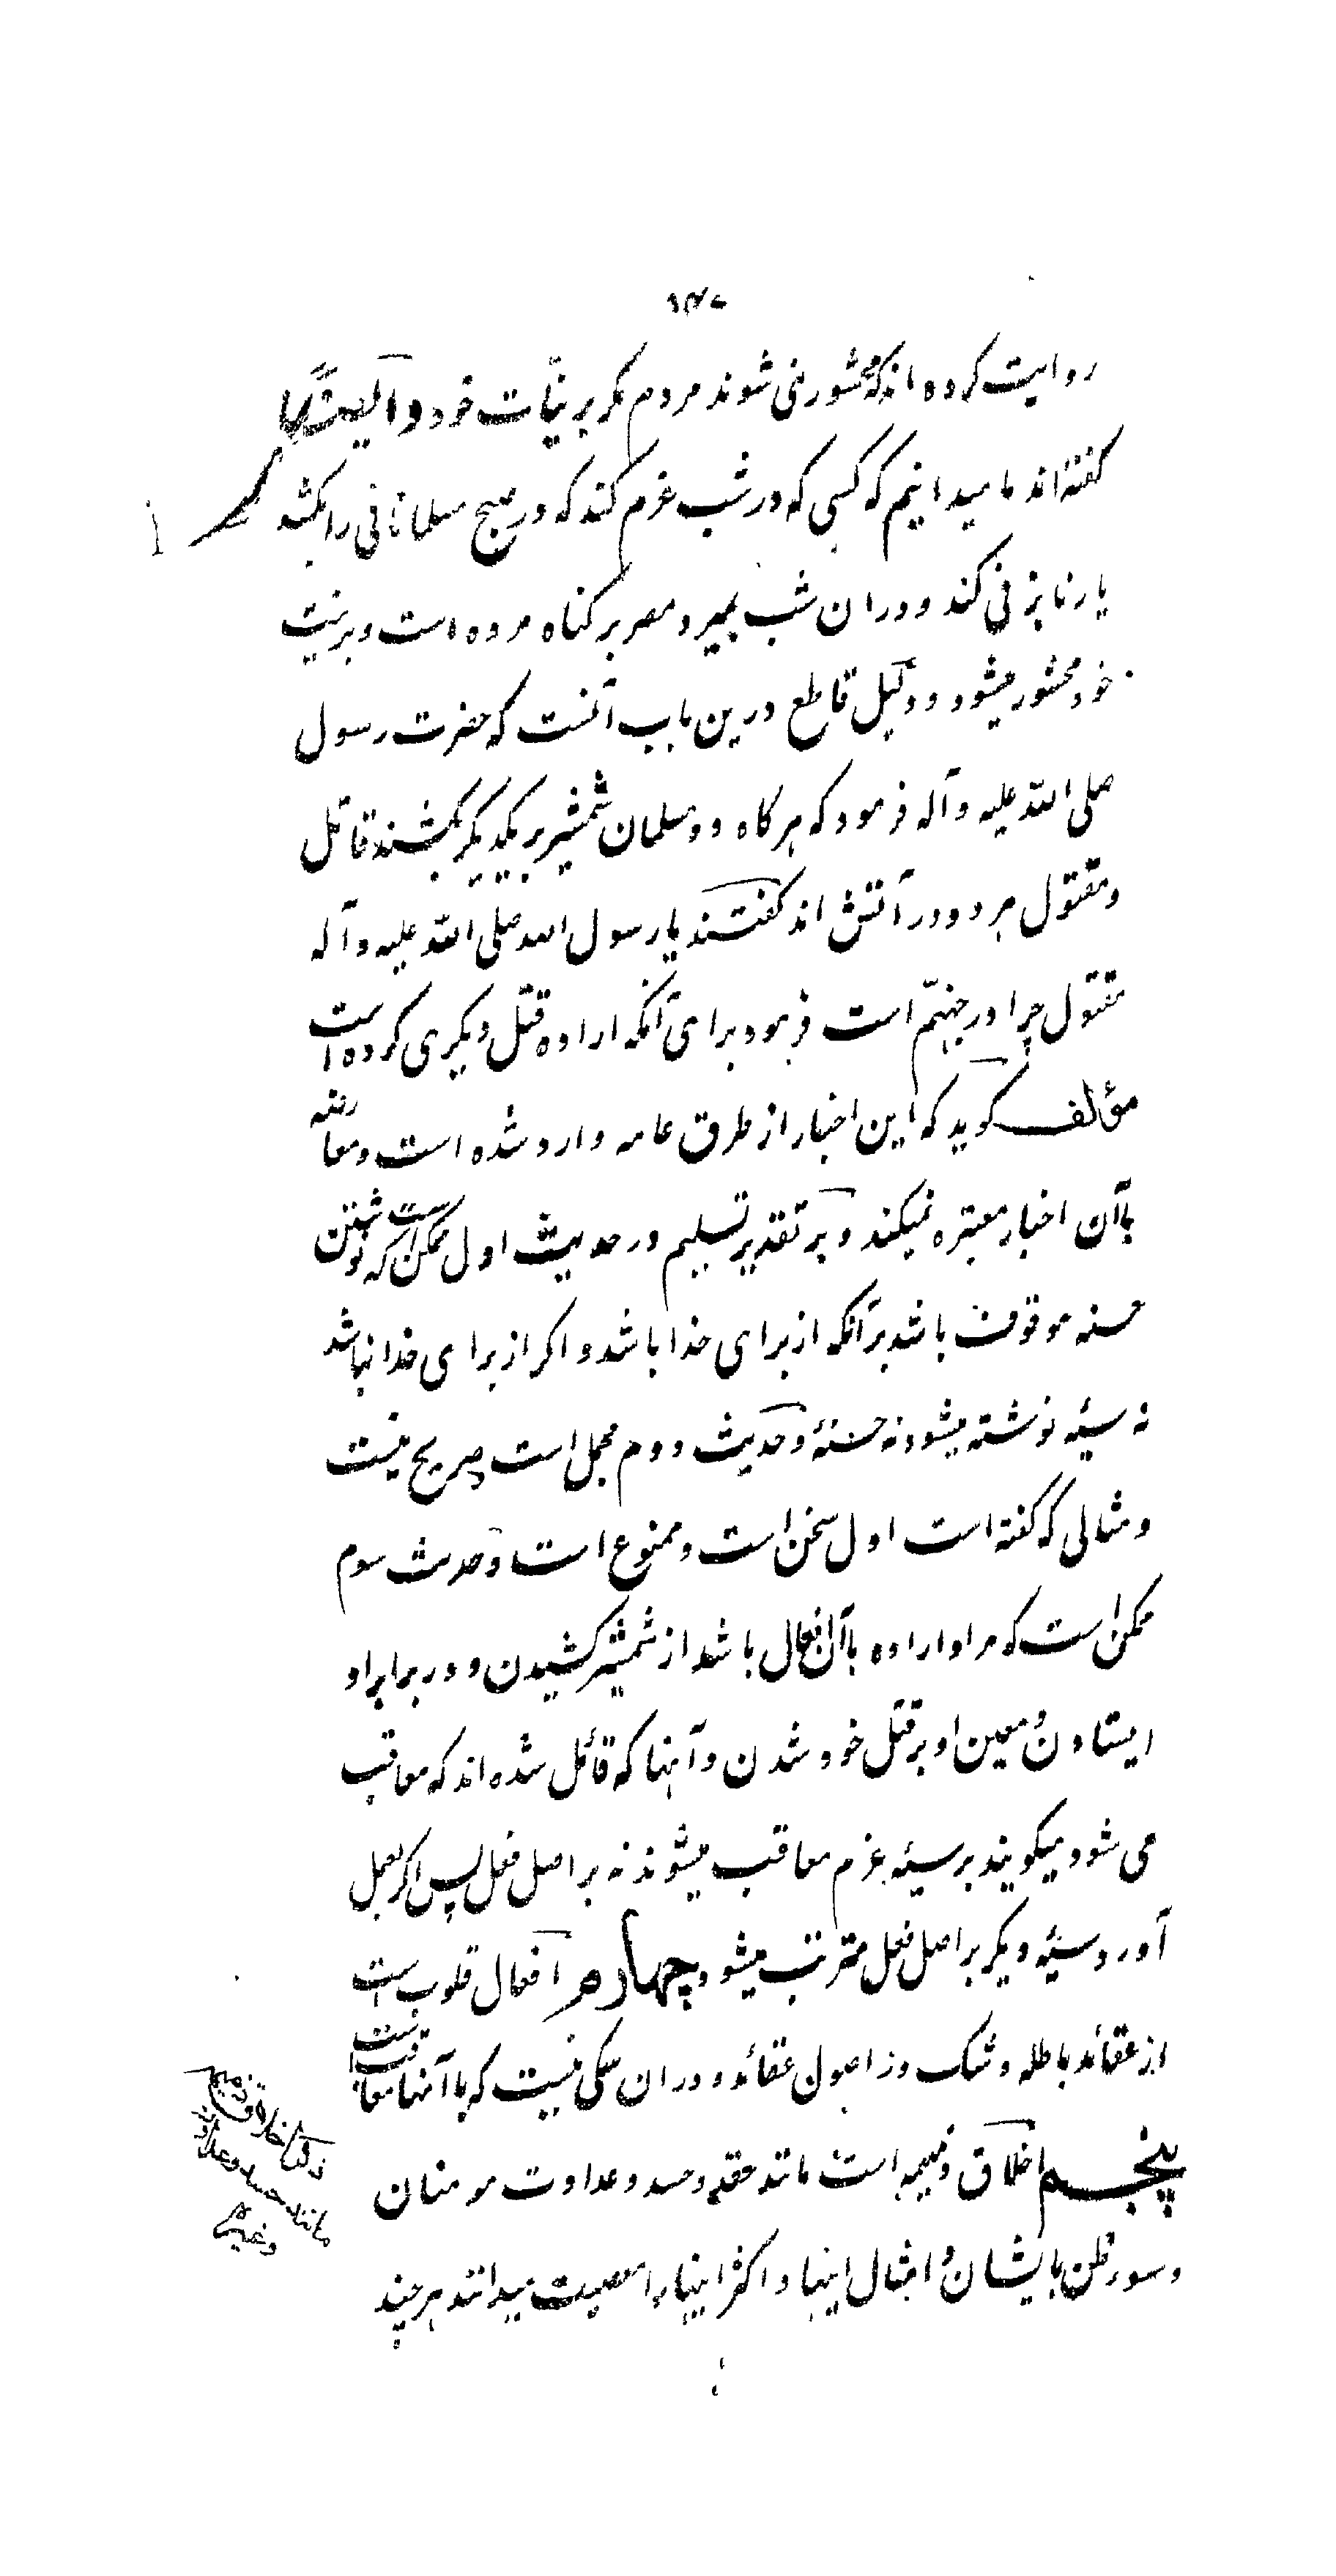 ۱۳۷
روایت کرده اند که محشور نمی شوند مردم مکر بر نیّات خود و ایضًا
کفته‌اند ما میدانیم که کسی که در شب عزم کند که در صبح مسلمانی را بکشد
یا زنا بزنی کند و دران شب بمیرد مصر بر کناه مرده است و بر نیت
خود محشور میشود و دلیل قاطع درین باب آنست که حضرت رسول
صلی الله علیه و آله فرمود که هر کاه دو مسلمان شمشیر بر یکدیکر بکشند قاتل
و مقتول هر دو در آتش اند کفتند یا رسول الله صلی الله علیه و آله
مقتول چرا در جهنّم است فرمود برای آنکه اراده قتل دیکری کرده است
مؤلف کوید که این اخبار از طرق عامه وارد شده است و معارضه
باآن اخبار معتبره نمیکند و بر تقدیر تسلیم در حدیث اول ممکن است که نوشتن
حسنه موقوف باشد برآنکه از برای خدا باشد و اکر از برای خدا نباشد
نه سیئه نوشته میشود نه حسنهٔ و حدیث دوم مجمل است صریح نیست
و مثالی که کفته است اول سخن است و ممنوع است و حدیث سوم
ممکن است که مراد اراده باآن افعال باشد از شمشیر کشیدن و در برابر او
ایستادن و معین او بر قتل خود شدن و آنها که قائل شده اند که معاقب
می شود میکویند بر سیئه عزم معاقب میشوند نه بر اصل فعل پس اکر بعمل
آورد سیئه دیکر بر اصل فعل مترتب میشود چهارم افعال قلوب است
از عقائد باطله و شک در اصول عقائد و دران شکی نیست که باآنها معاقب است
پنجم اخلاق ذمیمه است مانند حقد و حسد و عداوت مومنان
و سوء ظن بایشان و امثال اینها و اکثر اینها را معصیت میدانند هر چند
ذکر اخلاق ذمیمه
مانند حسد و عداوت
و غیره